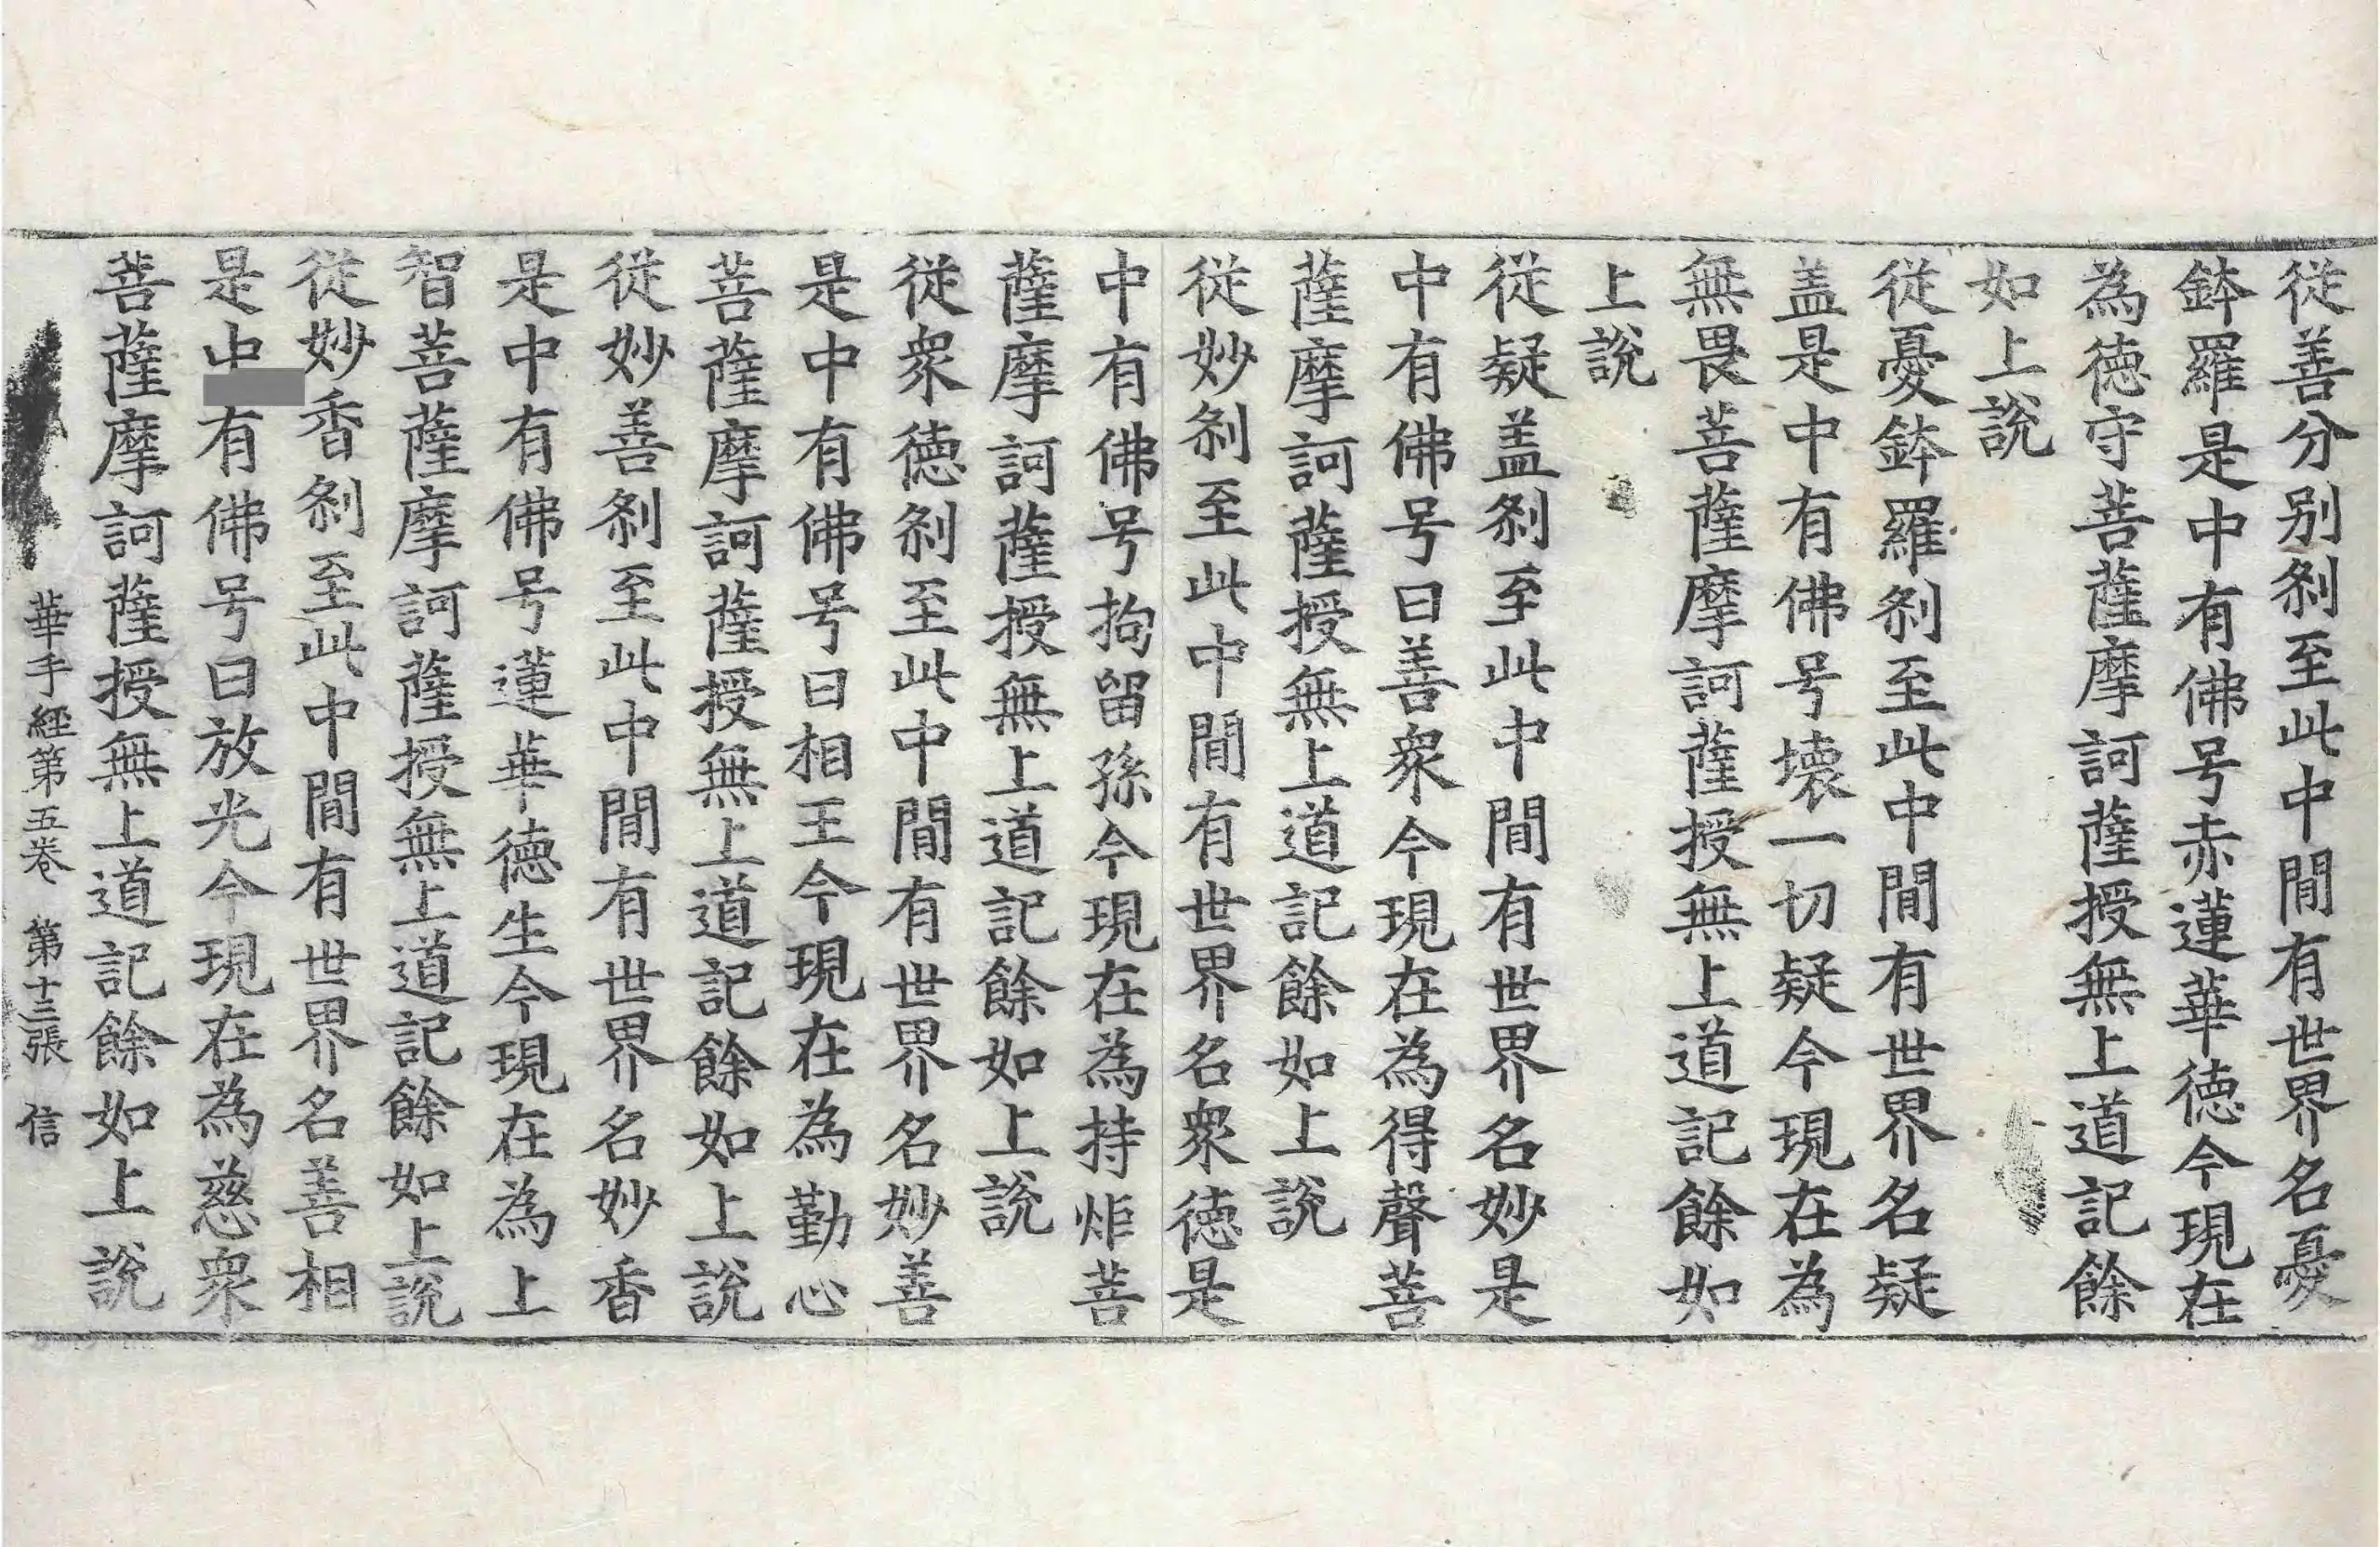 従善分别刹至此中間有世界名憂
鉢羅是中有佛号赤蓮華徳今現在
為徳守菩薩摩訶薩授無上道記餘
如上説
従憂鉢羅刹至此中間有世界名疑
盖是中有佛号壊一切疑今現在為
無畏菩薩摩訶薩授無上道記餘如
上説
従疑盖刹至此中間有世界名妙是
中有佛号曰善衆今現在為得聲菩
薩摩訶薩授無上道記餘如上説
従妙刹至此中間有世界名衆徳是
中有佛号拘留孫今現在為持炬菩
薩摩訶薩授無上道記餘如上説
従衆徳刹至此中間有世界名妙善
是中有佛号曰相王今現在為勤心
菩薩摩訶薩授無上道記餘如上説
従妙善刹至此中間有世界名妙香
是中有佛号蓮華徳生今現在為上
智菩薩摩訶薩授無上道記餘如上説
従妙香刹至此中間有世界名善相
是中有佛号曰放光今現在為慈衆
菩薩摩訶薩授無上道記餘如上説
華手経第五巻 第十三張 信